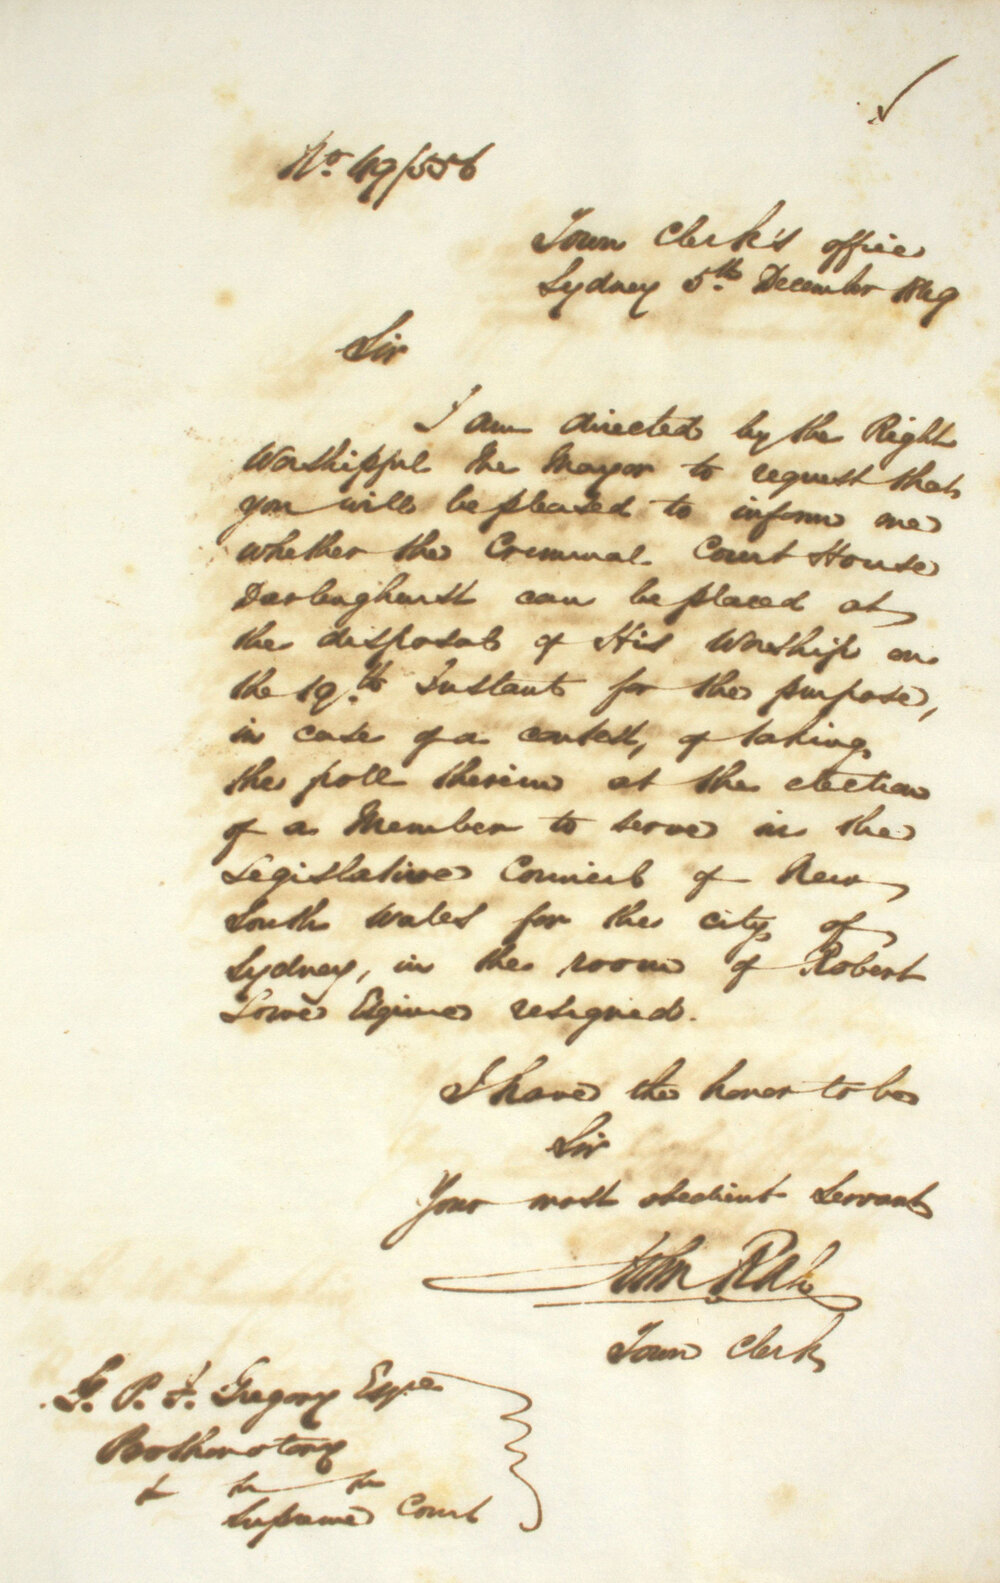 No. 49/556
Town Clerk's office
Sydney 5th December 1849
Sir
I am directed by the Right
Worshipful the Mayor to request that
you will be pleased to inform me
whether the Criminal Court House
Darlinghurst can be placed at
the disposal of His Worship on
the 19th Instant for the purpose,
in case of a contest, of taking
the poll therein at the election
of a Member to serve in the
Legislative Council of New
South Wales for the city of
Sydney, in the room of Robert
Lowe Esquire resigned.
I have the honor to be
Sir
Your most obedient Servant
John Rae
Town Clerk
G. P. F. Gregory Esqre
Prothonotary
Supreme Court